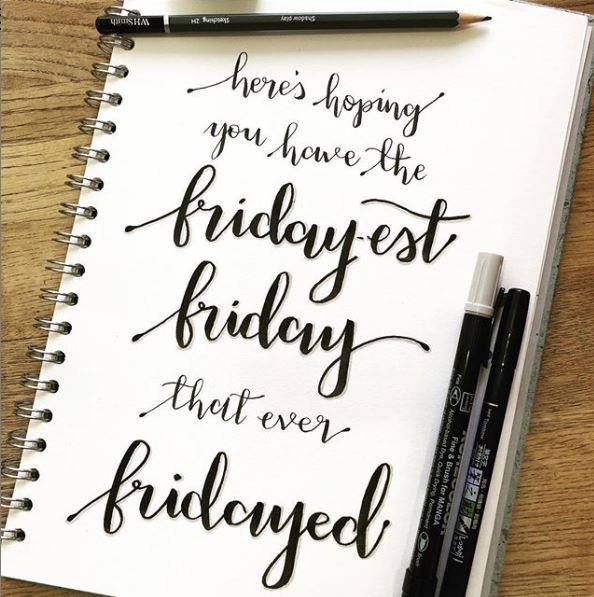 WHSmith Sketching 2H Shadow play
here's hoping
you have the
friday-est
friday
that ever
fridayed
Fine & Brush for MANGA